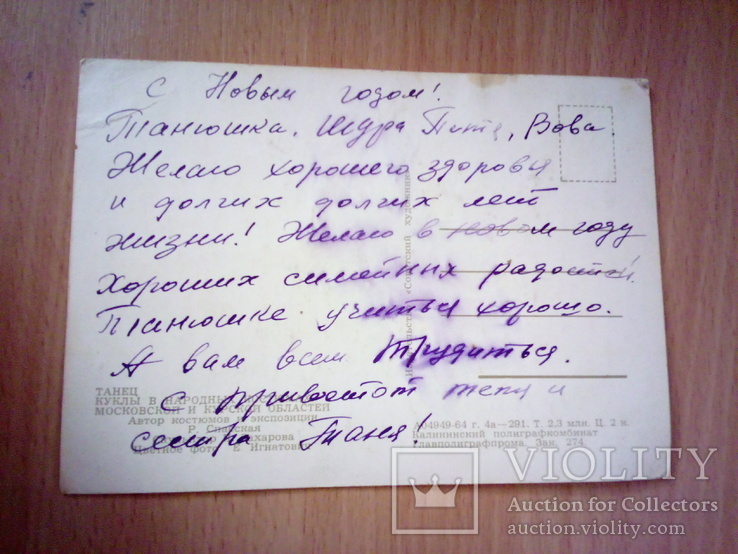 С Новым годом!
Танюшка, Шура Петя, Вова
Желаю хорошего здоровья
и долгих долгих лет
жизни! Желаю в новом году
хороших семейных радостей.
Танюшке учиться хорошо.
А вам всем трудиться.
с приветом тетя и
сестра Таня!
«Советский художник»
ТАНЕЦ
КУКЛЫ В НАРОДНЫХ
МОСКОВСКОЙ И КУРСКОЙ ОБЛАСТЕЙ
Автор костюмов и экспозиции
Р.
Захарова
Цветное фото Е. Игнатов
А04949-64 г. 4а—291. Т. 2,3 млн. Ц. 2 к.
Калининский полиграфкомбинат
Главполиграфпрома. Зак. 274
VIOLITY
Auction for Collectors
auction.violity.com